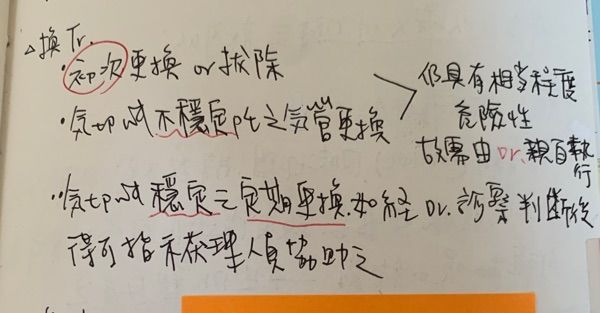 △換Tr.
·初次更換 or 拔除
·気切或不穩定pt之気管更換
仍具有相當程度
危險性
故需由Dr.親自執行
·気切或穩定之定期更換.如経Dr.診察判斷後
得可指示護理人員協助之